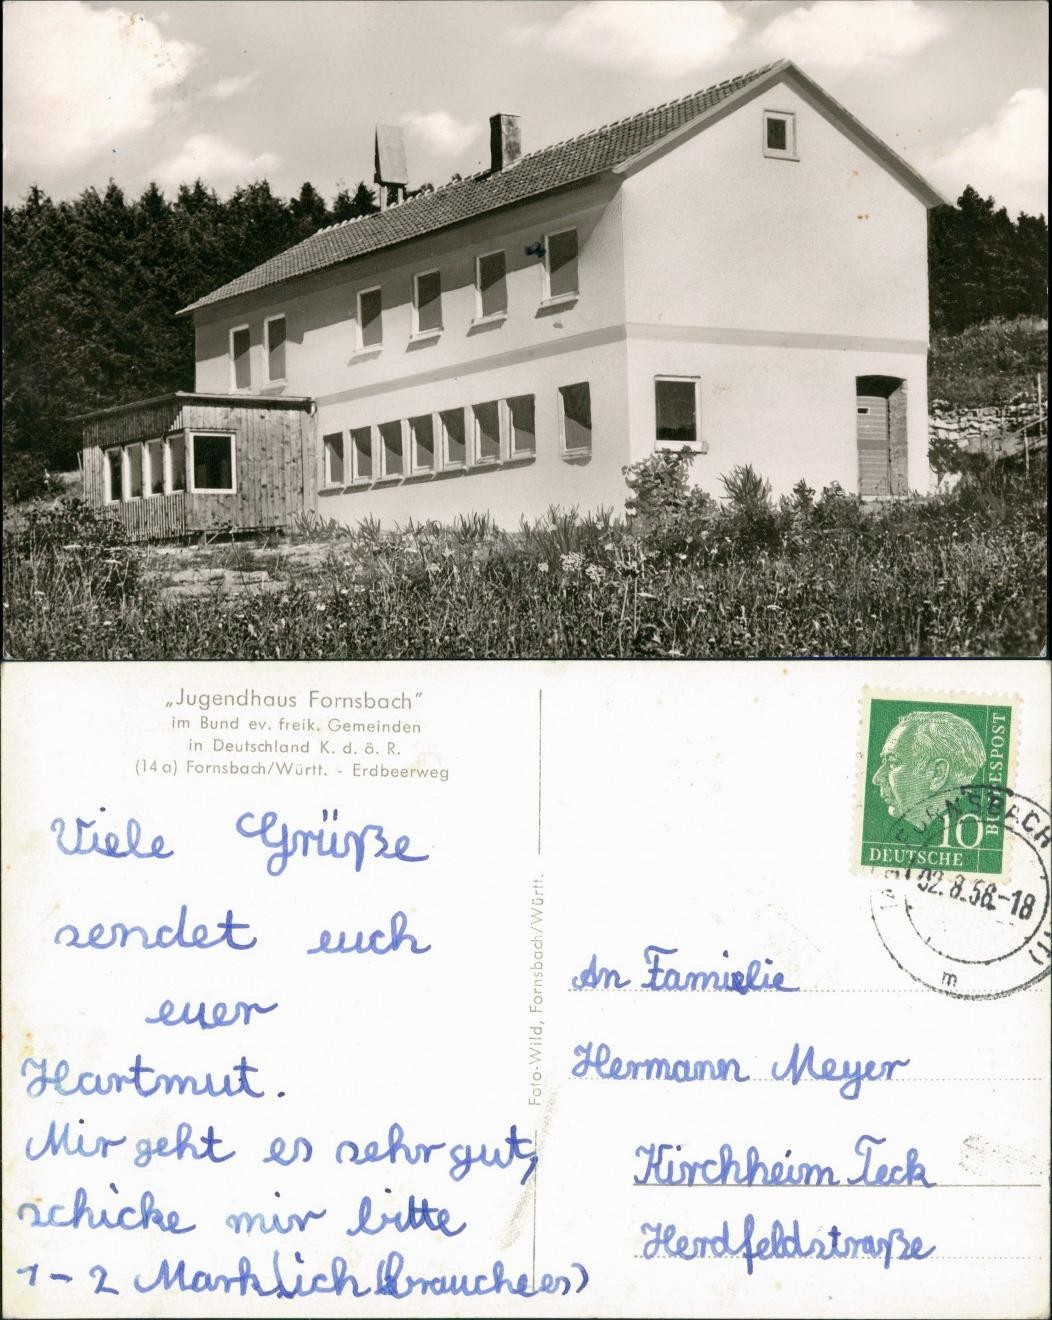 „Jugendhaus Fornsbach“
im Bund ev. freik. Gemeinden
in Deutschland K. d. ö. R.
(14a) Fornsbach/Württ. - Erdbeerweg
Viele Grüße
sendet euch
euer
Hartmut.
Mir geht es sehr gut,
schicke mir bitte
1-2 Mark (ich brauche es)
Foto-Wild, Fornsbach/Württ.
DEUTSCHE
BUNDESPOST
10
FORNSBACH
02.8.56.-18
m
An Familie
Hermann Meyer
Kirchheim Teck
Herdfeldstraße